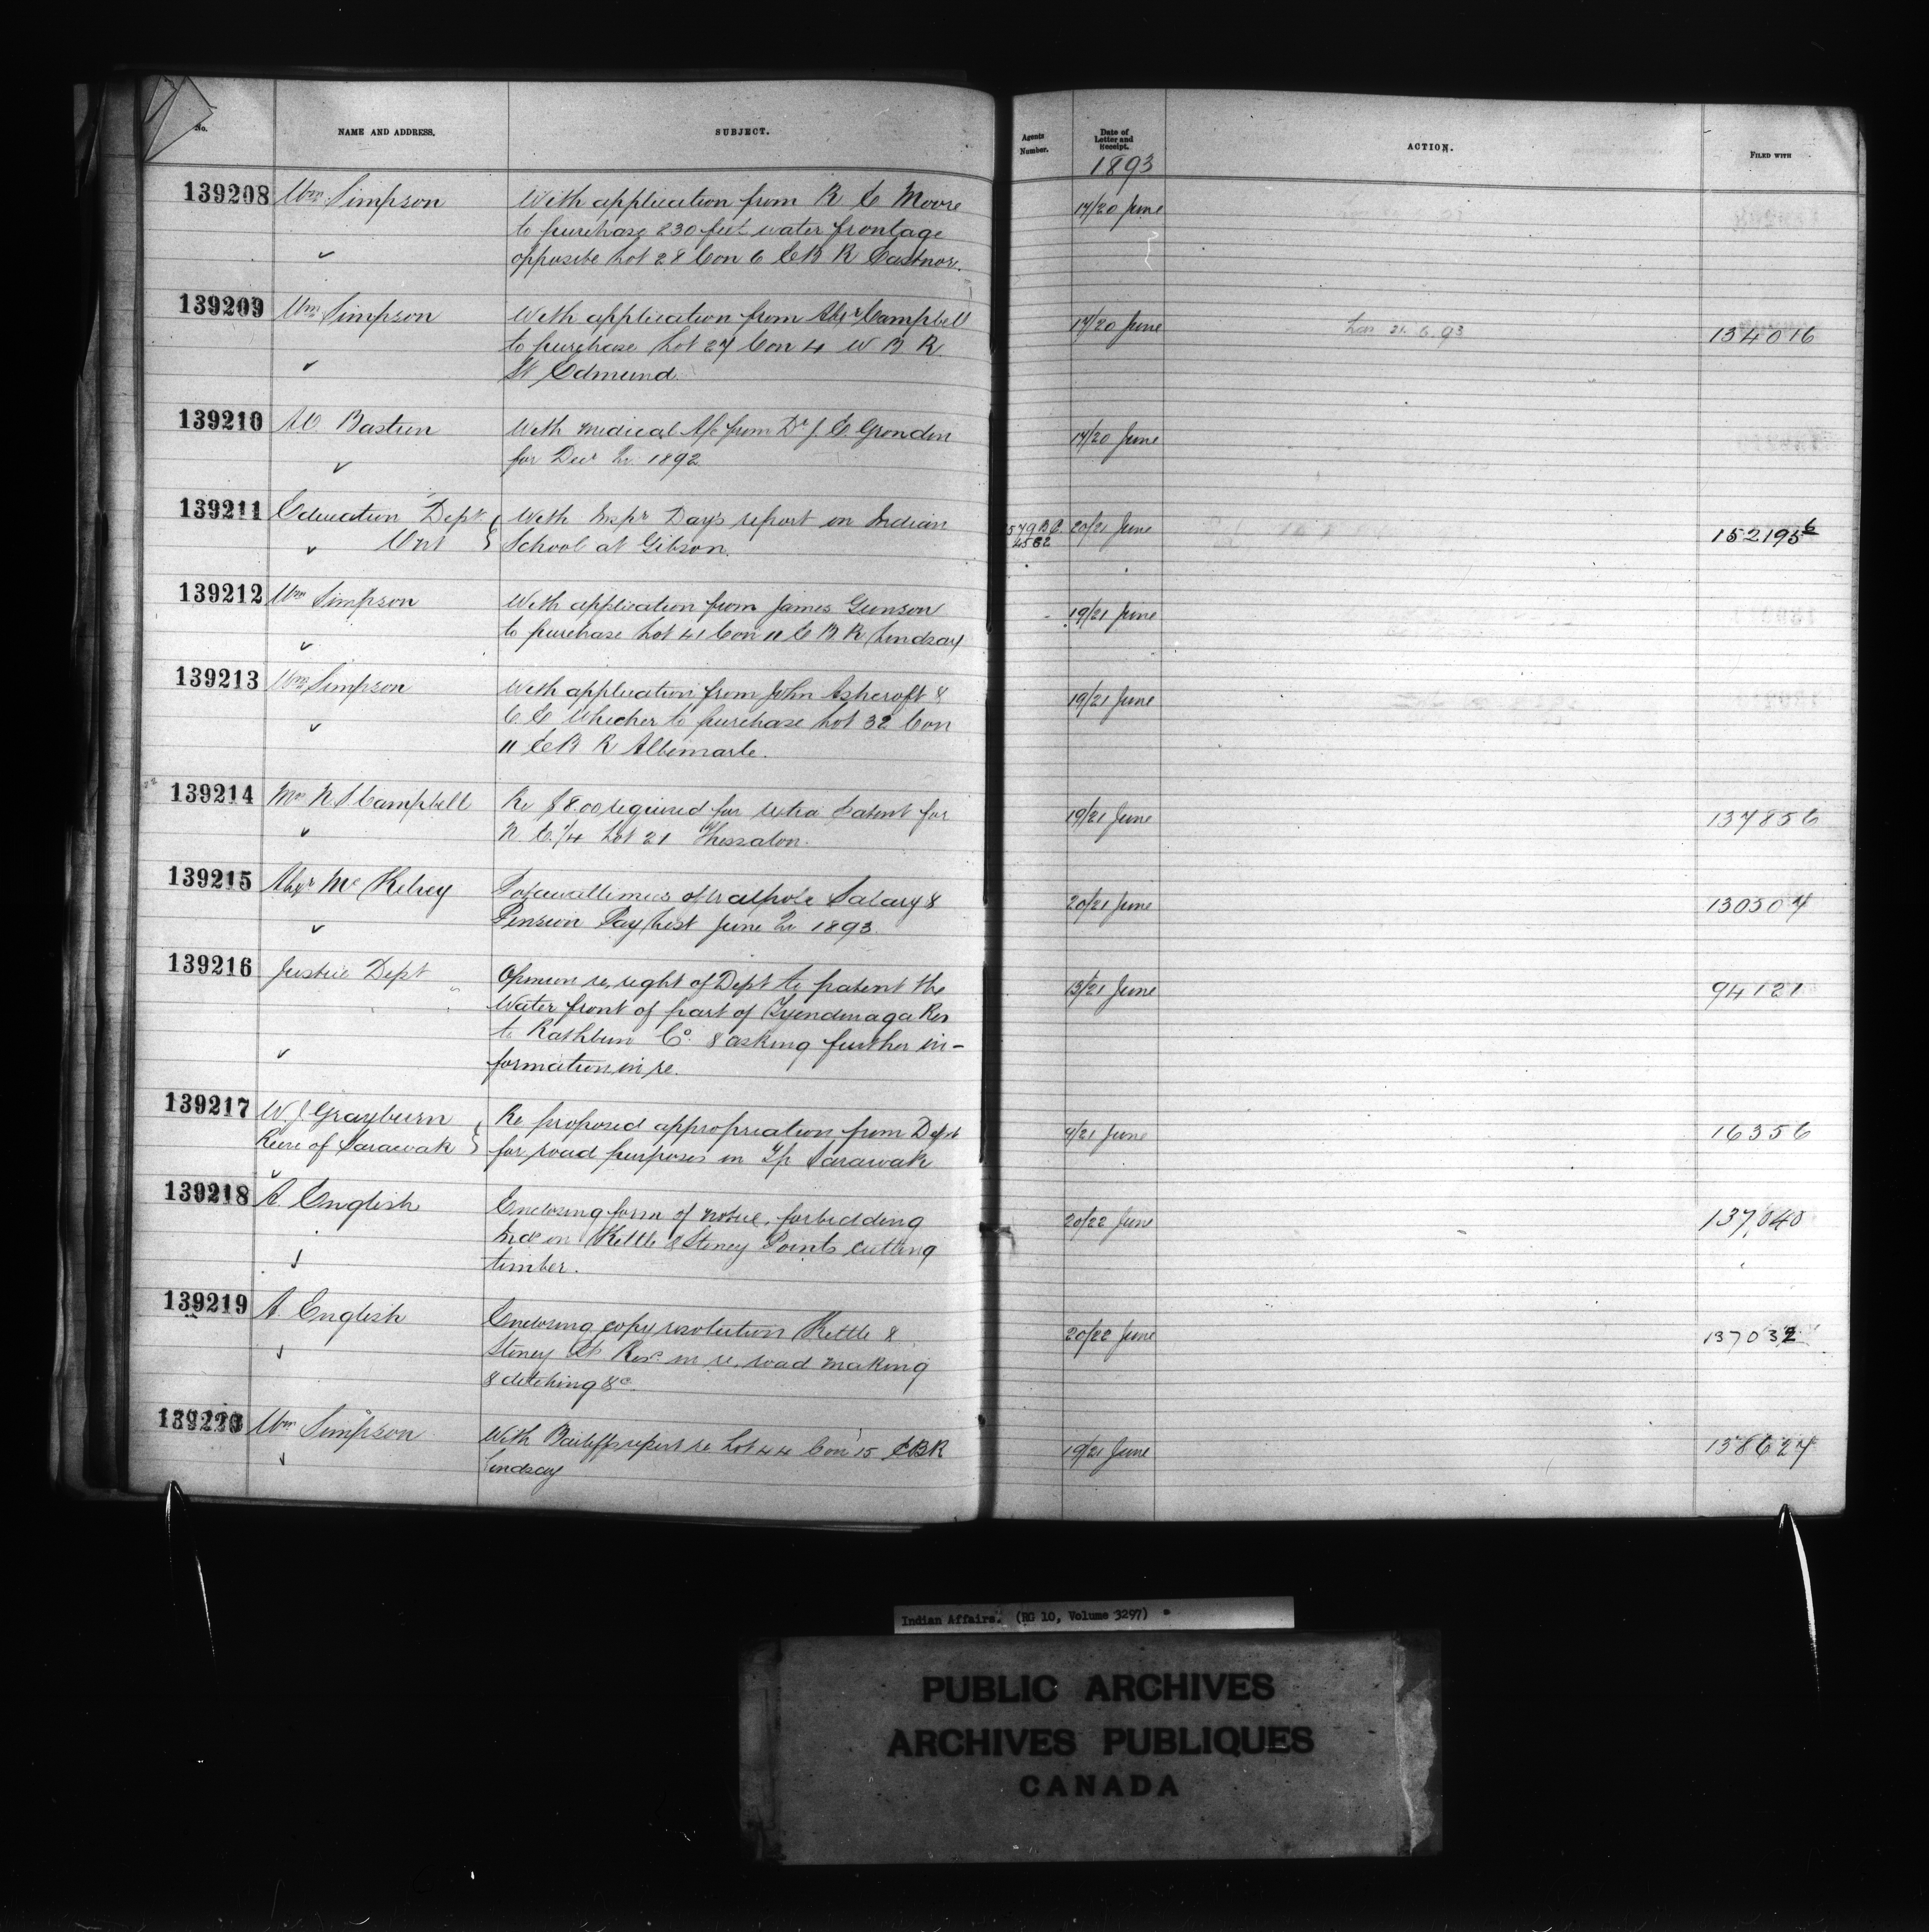 No.
NAME AND ADDRESS.
SUBJECT.
Agents Number.
Date of Letter and Receipt.
1893
ACTION.
FILED WITH
139208 Wm Simpson With application from R C Moore 17/20 June
to purchase 230 feet water frontage
opposite Lot 28 Con 6 E B R Eastnor.
139209 Wm Simpson With application from Alexr Campbell 17/20 June 21.6.93 134016
to purchase Lot 27 Con 4 W B R
St Edmund.
139210 Bastien With medical A/c from Dr J. E. Grondin 17/20 June
for Decr Qr 1892
139211 Education Dept With Inspr Day's report on Indian 20/21 June 152195 6
Ont School at Gibson.
139212 Wm Simpson With application from James Gunson 19/21 June
to purchase Lot 41 Con 11 E B R Lindsay
139213 Wm Simpson With application from John Ashcroft & 19/21 June
C. E Whicher to purchase Lot 32 Con
11 E B R Albemarle.
139214 N S Campbell Re $8.00 required for extra Patent for 19/21 June 137856
N. E. 1/4 Lot 21 Thessalon.
139215 Alexr McKelvey Potawattimies of Walpole Salary & 20/21 June 130507
Pension Pay List June Qr 1893
139216 Justice Dept Opinion re, right of Dept to patent the 13/21 June 94121
Water front of part of Tyendinaga Res
to Rathbun Co. & asking further in-
formation in re.
139217 W. J Grayburn Re proposed appropriation from Dept /21 June 16356
Reeve of Sarawak for road purposes in Tp Sarawak
139218 A. English Enclosing form of notice, forbidding 20/22 June 137,040
Inds on Kettle & Stoney Points cutting
timber.
139219 A English Enclosing copy resolution Kettle & 20/22 June 137032
Stoney Pt Res. in re. road making
& ditching &c.
139220 Wm Simpson With Bailiffs report re Lot 44 Con 15 E B R 19/21 June 138627
Lindsay
Indian Affairs. (RG 10, Volume 3297)
PUBLIC ARCHIVES
ARCHIVES PUBLIQUES
CANADA